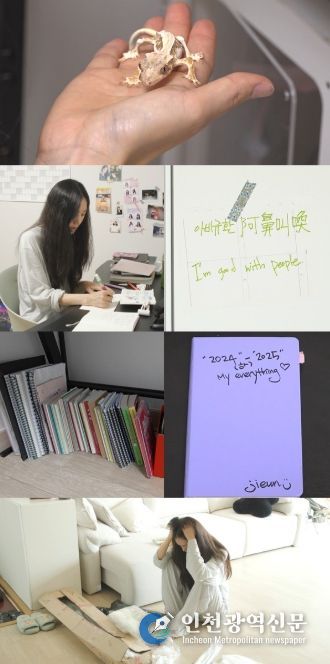 아비규환 阿鼻叫喚
I'm good with people
"2024" - "2025"
My everything♡
jieun
인천광역신문
Incheon Metropolitan newspaper